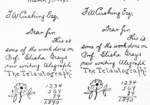 F.W. Cushing Esq.
Dear Sir,
This is
some of the work done on
Prof. Elisha Grays
new writing telegraph
The Telautograph
1234
567
890
F.W. Cushing Esq.
Dear Sir,
This is
some of the work done on
Prof. Elisha Grays
new writing telegraph
The Telautograph
1234
567
1890